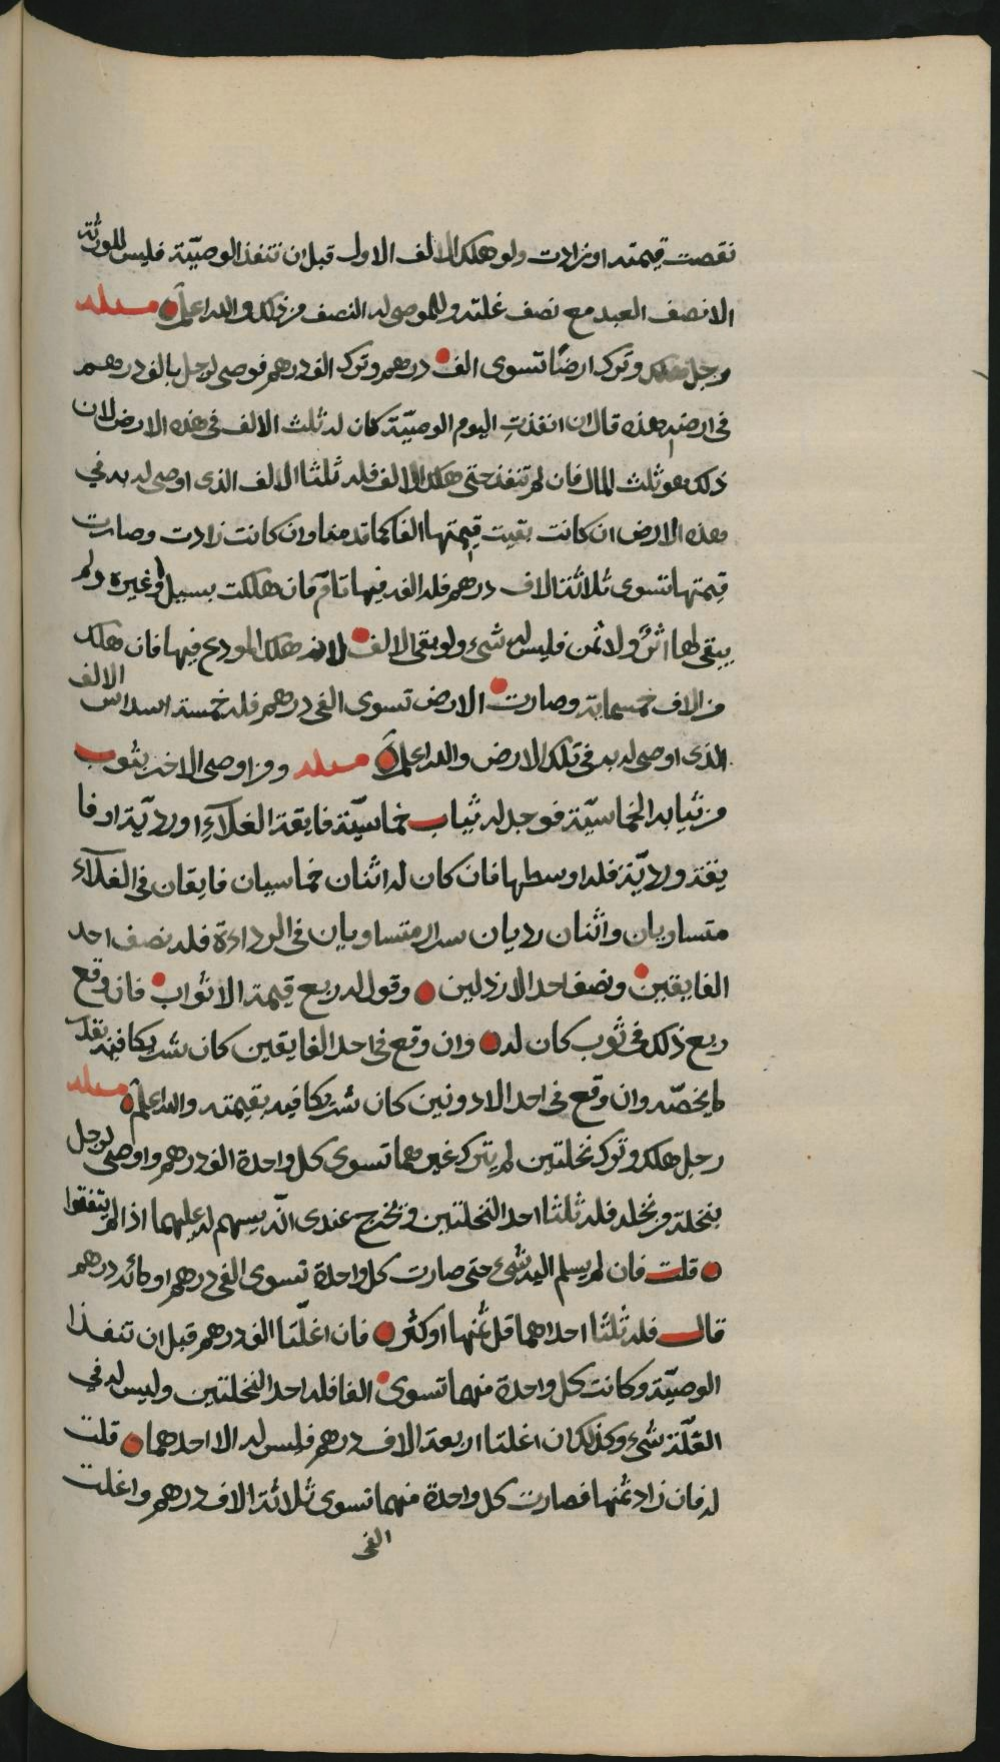 نقصت قيمته او زادت ولو هلك الالف الاول قبل ان تنفذ الوصيّة فليس للورثة
الا نصف العبد مع نصف غلته وللموصى له النصف من ذلك والله اعلم مسئله
رجل هلك وترك ارضًا تسوى الف درهم وترك الف درهم فوصى لرجل بالف درهم
فى ارضه هذه قال ان انفذت اليوم الوصيّة كان له ثلث الالف فى هذه الارض لان
ذلك هو ثلث المال فان لم تنفذ حتى هلك الالف فله ثلثا الالف الذى اوصى له به في
هذه الارض ان كانت بقيت قيمتها الفا كما قدمنا وان كانت زادت وصارت
قيمتها تسوى ثلاثة الاف درهم فله الف فيها تامّ فان هلكت بسيل او غيره ولم
يبقى لها اثرٌ ولا ثمن فليس له شىء ولو بقى الالف لانه هلك المودع فيها فان هلك
من الاف خمسماية وصارت الارض تسوى الفى درهم فله خمسة اسداس الالف
الذى اوصى له به فى تلك الارض والله اعلم مسئله ومن اوصى لاخر بثوب
من ثيابه الخماسيّة فوجد له ثياب خماسيّة فايقة الغلآءِ او رديّة او فا
يقة ورديّة فله اوسطها فان كان له اثنان خماسيان فايقان فى الغلآء
متساويان واثنان رديان متساويان فى الرداءة فله نصف احد
الفايقين ونصف احد الارذلين وقول له ربع قيمة الاثواب فان وقع
ربع ذلك فى ثوب كان له وان وقع فى احد الفايقين كان شريكا فيه بقدر
ما يخصّه وان وقع فى احد الادونين كان شريكا فيه بقيمته والله اعلم مسئله
رجل هلك وترك نخلتين لم يترك غيرهما تسوى كل واحدة الف درهم واوصى لرجل
بنخلة من نخله فله ثلثا احد النخلتين ويخرج عندى انّه يسهم له عليهما اذا لم يتفقوا
قلت فان لم يسلم اليه شىء حتى صارت كل واحدة تسوى الفى درهم او مائه درهم
قال فله ثلثا احداهما قل ثمنها او كثر فان اغلّتا الف درهم قبل ان تنفذا
الوصيّة وكانت كل واحدة منهما تسوى الفا فله احد النخلتين وليس له في
الغلّة شىء وكذلك ان اغلتا اربعة الاف درهم فليس له الا احدهما قلت
له فان زاد ثمنها فصارت كل واحدة منهما تسوى ثلاثة الاف درهم واغلت
الفى